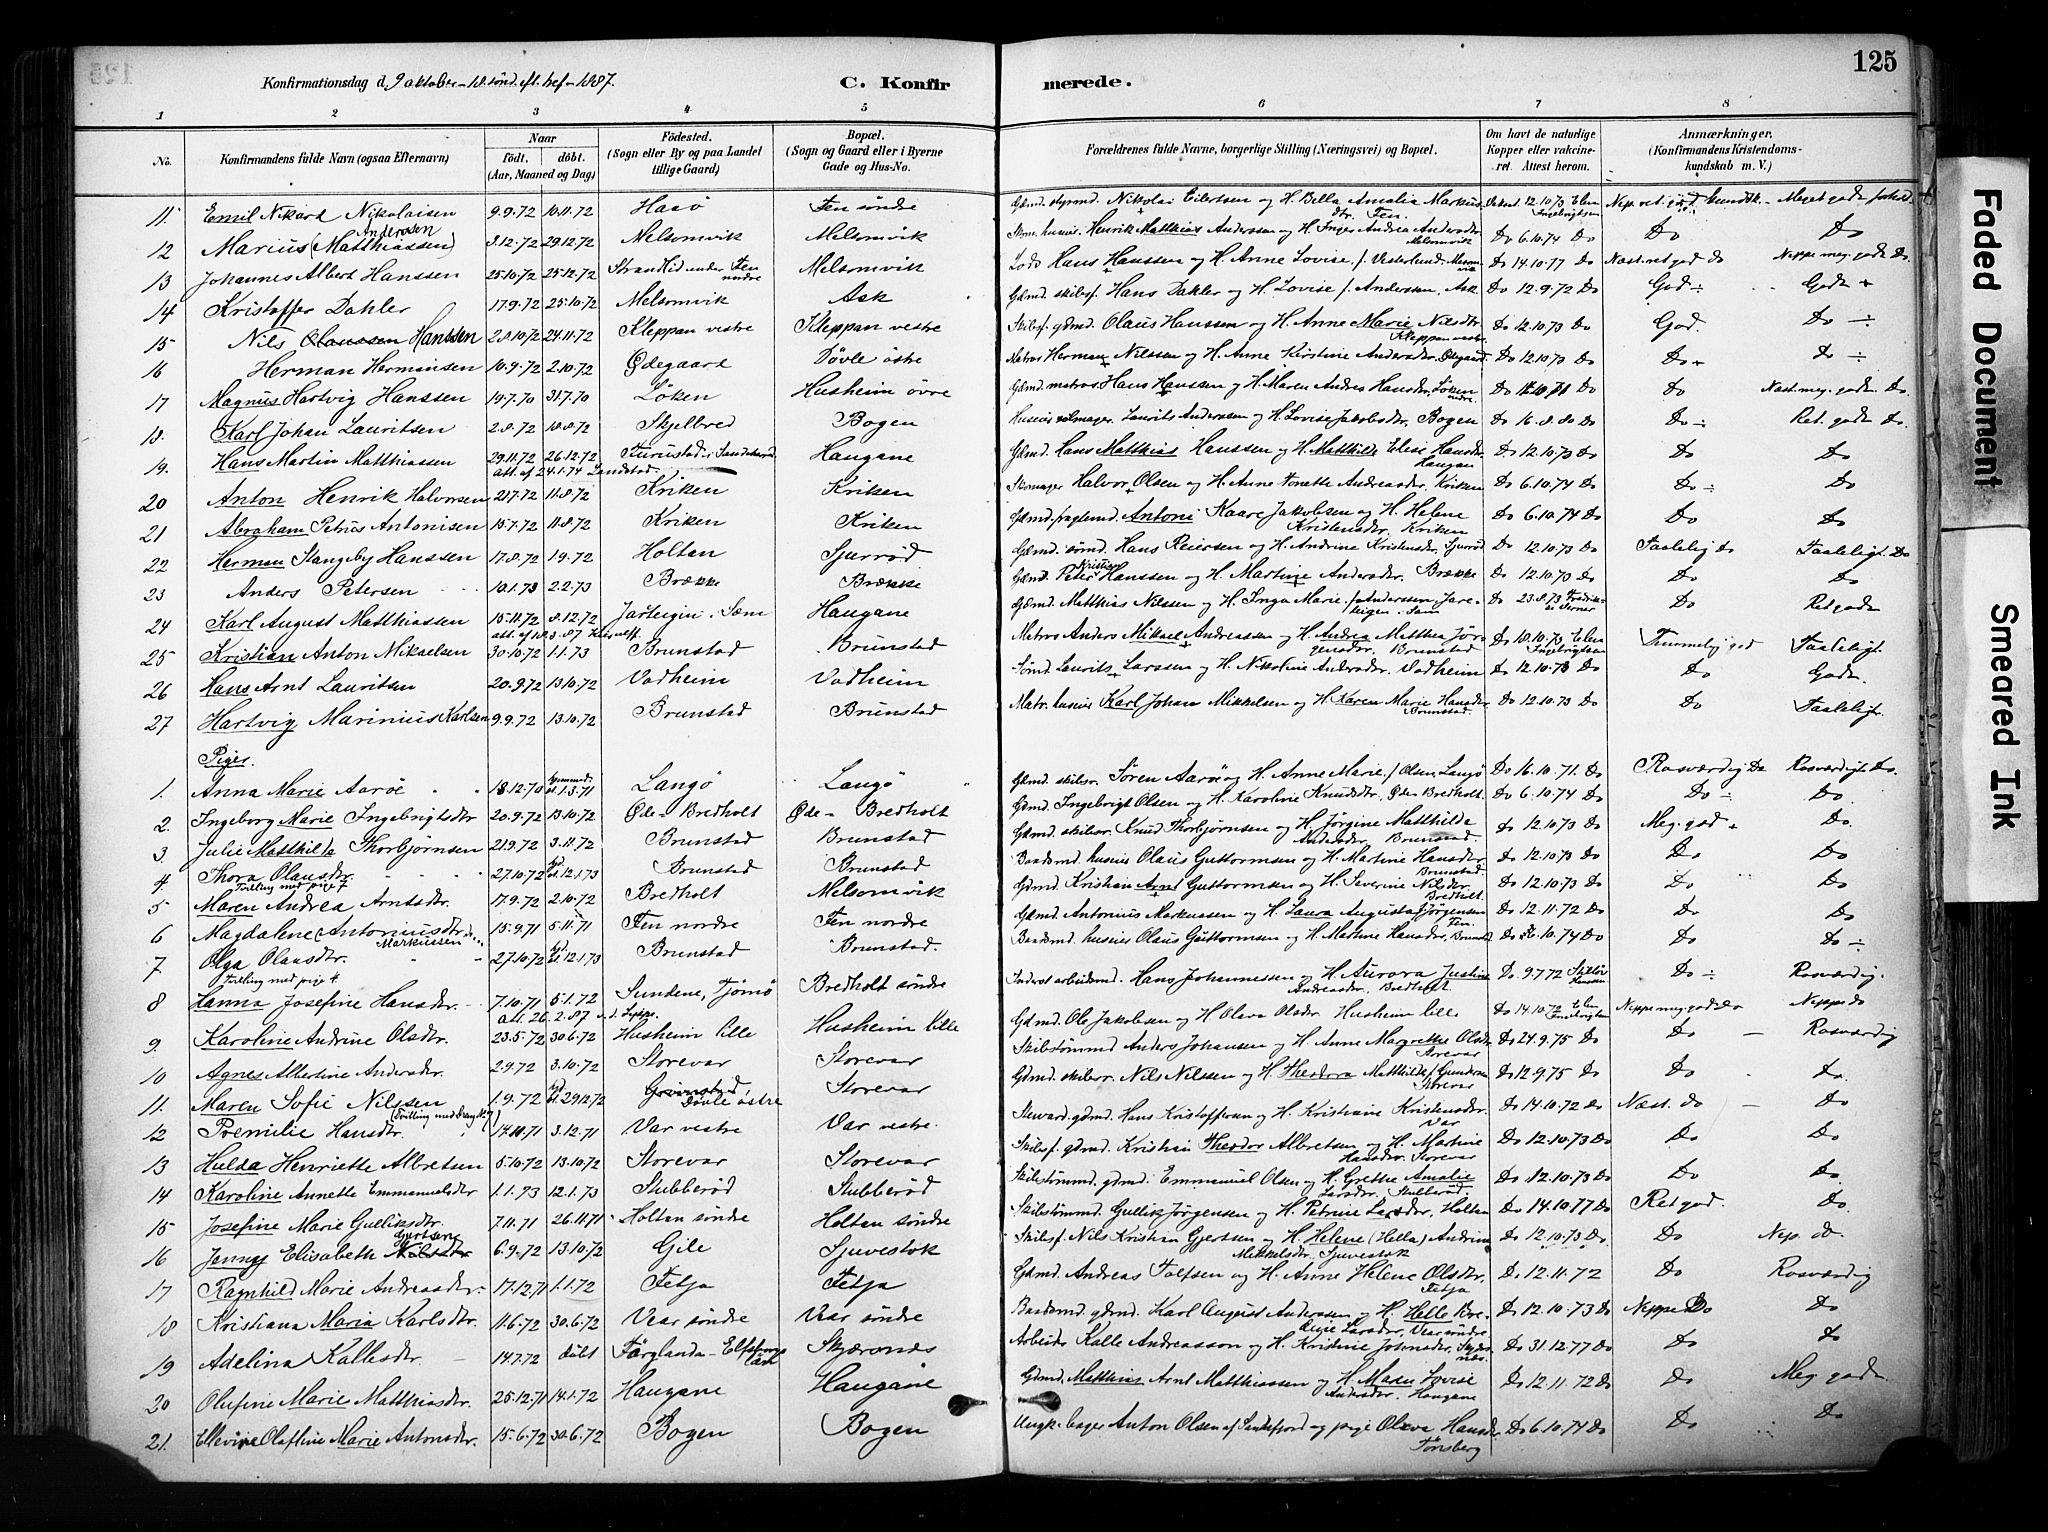 125
Konfirmationsdag d. 9 oktober - 18 sønd. eft. tref - 1887. C. Konfirmerede.
1 2 3 4 5 6 7 8
No. Konfirmandens fulde Navn (ogsaa Efternavn) Naar født. døbt. (Aar, Maaned og Dag) Fødested. (Sogn eller By og paa Landet tillige Gaard) Bopæl. (Sogn og Gaard eller i Byerne Gade og Hus-No. Forældrenes fulde Navne, borgerlige Stilling (Næringsvei) og Bopæl. Om havt de naturlige Kopper eller vakcineret. Attest herom. Anmærkninger. (Konfirmandens Kristendomskundskab m. V.)
11. Emil Nikard Nikolaisen 9.9.72 10.11.72 Hasø Fen søndre Gdmd. styrmd. Nikolai Eilertsen og H. Bella Amalia Markusdtr. Fen. 12.10.73
12 Marius (Matthiassen) Andersen 3.12.72 29.12.72 Melsomvik Melsomvik Henrik Matthias Andersen og H. Inger Andrea Andersdtr Melsomvik Do 6.10.74 Do Do Do
13 Johannes Albert Hanssen 25.10.72 25.12.72 Strandlid under Fen søndre Melsomvik Lods Hans Hanssen og H. Anne Lovise f. Vesterlund, Melsomvik Do 14.10.77 Do
14 Kristoffer Dahler 17.9.72 25.10.72 Melsomvik Ask Gdmd. skibsf. Hans Dahler og H. Lovise f. Anderssen, Ask Do 12.9.72 Do God ÷ Godt +
15 Nils Olaussen Hanssen 2.8.10.72 24.11.72 Kleppan vestre Kleppan vestre Skibsf. gdmd. Olaus Hanssen og H. Anne Marie Nilsdtr. Kleppan vestre Do 12.10.73 Do God. Do ÷
16 Herman Hermansen 10.9.72 2.10.72 Ødegaard Døvle østre Matros Herman Nilssen og H. Anne Kirstine Andersdtr, Ødegaard Do 12.10.73 Do Do + Do ÷
17 Magnus Hartvig Hanssen 19.7.70 31.7.70 Løken Husheim øvre Gdmd. matros Hans Hanssen og H. Maren Andrea Hansdtr, Løken nedre Do Do Do
18. Karl Johan Lauritsen 2.8.72 18.8.72 Skjelbred Bogen Laurits Anderssen og H. Lovise Jakobsdtr, Bogen Do 16.8.80 Do Do ÷ Ret godt Do.
19. Hans Martin Matthiassen 29.11.72 26.12.72 Furustad, Sandeherred Haugane Gdmd. Hans Matthias Hanssen og H. Matthilde Elise Hansdtr Haugan Do 12.10.73 Do Do Do
att. af 24.1.74 Landstad.
20 Anton Henrik Halvorsen 21.7.72 11.8.72 Kriken Kriken Skomager Halvor Olsen og H. Anne Nonette Andreasdtr, Kriken Do 6.10.74 Do Do ÷ Do
21 Abraham Petrus Antonisen 15.7.72 11.8.72 Kriken Kriken Gdmd. fragtemd. Antoni Kaare Jakobsen og H. Helene Kristensdtr, Kriken Do 6.10.74 Do Do Do
22 Herman Stangeby Hanssen 17.8.72 1.9.72 Holtan Gjurrød Gdmd. sømd. Hans Reiersen og H. Andrine Kristensdtr, Gjurrød Do 12.10.73 Do Taalelig Do Taaleligt Do
23 Anders Petersen 10.1.73 2.2.73 Brække Brække Gdmd. Peter Kristian Hanssen og H. Martine Andersdtr. Brække Do 12.10.73 Do Do Do
24 Karl August Matthiassen 15.11.72 8.12.72 Jarteigin. Sem Haugane Gdmd. Matthias Nilssen og H. Inga Marie f. Anderssen Jareteigen. Sem Do 23.8.73 Do Ret godt
25 Kristian Anton Mikaelsen 30.10.72 1.1.73 Brunstad Brunstad Matros Anders Mikael Andreassen og H. Andrea Matthea Jørgensdtr, Brunstad Do 18.10.73 Elen Ingebrigtsen Temmelig god Taaleligt.
26 Hans Arnt Lauritsen 20.9.72 13.10.72 Vadheim Vadheim Sømd Laurits Larssen og H. Nikoline Andersdtr. Vadheim Do 12.10.73 Do Do Godt.
27 Hartvig Marinius Karlsen 9.9.72 13.10.72 Brunstad Brunstad Matr. husm. Karl Johan Mikkelsen og H. Karen Marie Hansdtr Brunstad. Do 12.10.73 Do Do Taaleligt.
Piger.
1. Anna Marie Aarøe 18.12.70 hjemmed. 1.3.71 Langø Langø Gdmd. skibsr. Søren Aarøe og H. Anne Marie f. Olsen, Langø Do 16.10.71. Do Rosværdig Do Rosværdigt Do.
2. Ingeborg Marie Ingebrigtsdtr 20.9.72 13.10.72 Øde-Bredholt Øde-Bredholt Gdmd. Ingebrigt Olsen og H. Karoline Knudsdtr, Øde-Bredholt. Do 6.10.74 Do Do ÷ Do.
3. Julie Matthilda Thorbjørnsen 21.9.72 3.11.72 Brunstad Brunstad Gdmd. skibsr. Knud Thorbjørnsen og H. Jørgine Matthilda Andersdtr, Brunstad Do 12.10.73 Do Meg. god + Do.
4. Thora Olausdtr. 27.10.72 12.1.73 Brunstad Brunstad Baadsmd. husm. Olaus Guttormsen og H. Martine Hansdtr Brunstad Do 12.10.73 Do Do Do
Tvilling med pige 7
5 Maren Andrea Arntsdtr. 17.9.72 2.10.72 Bredholt Melsomvik Gdmd. Kristian Arnt Guttormsen og H. Severine Nilsdtr. Bredholt. Do 12.10.73 Do Do Do
6 Magdalene (Antoniusdtr.) Markussen 15.9.71 5.11.71 Fen nordre Fen nordre Gdmd. Antonius Markussen og H. Laura Augusta f. Jørgensen Fen. Do 12.11.72 Do Do Do
7 Olga Olausdtr. 27.10.72 12.1.73 Brunstad Brunstad. Baadsmd. husm. Olaus Guttormsen og H. Martine Hansdtr, Brunstad Do 6.10.74 Do Do Do ÷
Tvilling med pige 4
8 Hanna Josefine Hansdtr. 7.10.71 5.1.72 Sundene, Tjømø Bredholt søndre Inderst arbeidmd. Hans Johannessen og H. Aurora Justine Andreasdtr, Bredholt Do. 9.7.72 Do ÷ Rosværdig.
9. Karoline Andrine Olsdtr. 23.5.72 30.6.72 Husheim lille Husheim lille Gdmd. Ole Jakobsen og H. Olava Olsdtr. Husheim lille Do 14.10.72 Elen Ingebrigtsen Neppe meg. god Do Neppe do
10 Agnes Albertine Andersdtr. 2.9.72 3.10.72 Storevar Storevar Skibstømmd Anders Johansen og H. Anne Margrethe Olsdtr. Storevar Do 24.9.75 Do Do - Rosværdig
11. Maren Sofie Nilssen 1.9.72 29.12.72 Grimestad Døvle østre Storevar Gdmd. skibsr. Nils Nilssen og H. Theodora Matthilde f. Gundersen Storevar Do 12.9.75 Do Do Do.
12 Premilie Hansdtr. 14.10.71 3.12.71 Var vestre Var vestre. Steward. gdmd. Hans Kristoffersen og H. Kristiane Kristensdtr. Var Do 14.10.72 Do Næst. do - Do
13 Hulda Henriette Albretsen 5.10.72 13.10.72 Storevar Storevar Skibsf. gdmd. Kristian Theodor Albretsen og H. Martine Hansdtr. Storevar Do 12.10.73 Do Do Do
14 Karoline Annette Emmanuelsdtr 1.1.73 12.1.73 Stubberød Stubberød Skibstømmd. gdmd. Emmanuel Olsen og H. Grethe Amalie Larsdtr. Stubberød. Do 12.10.73 Do Do Do.
15 Josefine Marie Gulliksdtr. 7.11.71 26.11.71 Holtan søndre Holtan søndre Skibstømmd. Gullik Jørgensen og H. Petrine Larsdtr, Holtan Do 14.10.77 Do Ret god. Do.
16 Jenny Elisabeth Nilsdtr Gjertsen 6.9.72 13.10.72 Gile Gjuvestok Skibsf. Nils Kristian Gjertsen og H. Helene (Hella) Andrine Mikkelsdtr, Gjuvestok Do 12.10.73 Do Do Nep. do.
17 Ragnhild Marie Andreasdtr. 17.12.71 1.1.72 Fetja Fetja Gdmd. Andreas Tolfsen og H. Anne Helene Olsdtr, Fetja Do 12.11.72 Do Rosværdig
18 Kristiana Maria Karlsdtr. 11.6.72 30.6.72 Vear søndre Vear søndre Baadsmd. gdmd. Karl August Anderssen og H. Helle Larsdtr, Vear søndre Do 12.10.73 Do Neppe Do Do
19 Adelina Kallesdtr. 14.7.72 døbt Färglanda - Elfsborgs län Skjærsnæs Arbeider Kalle Andreasson og H. Kristine Johnsdtr, Skjærsnæs. Do 31.12.77 Do Do Do
20 Olufine Marie Matthiasdtr. 25.12.71 14.1.72 Haugane Haugane Gdmd. Matthias Arnt Matthiassen og H. Maren Lovise Andersdtr. Haugane Do 12.11.72 Do Do Meg godt
21. Ellevine Olafine Marie Antonsdtr. 15.6.72 30.6.72 Bogen Bogen Ungk. bager Anton Olsen af Sandefjord og pige Olava Hansdtr. Tønsberg Do 6.10.74 Do Do Do
Faded Document
Smeared Ink